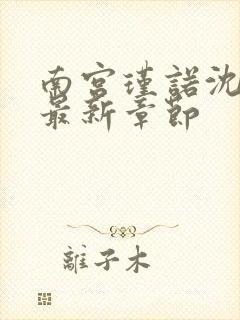 南宫瑾諾沈
最新章節
離子木